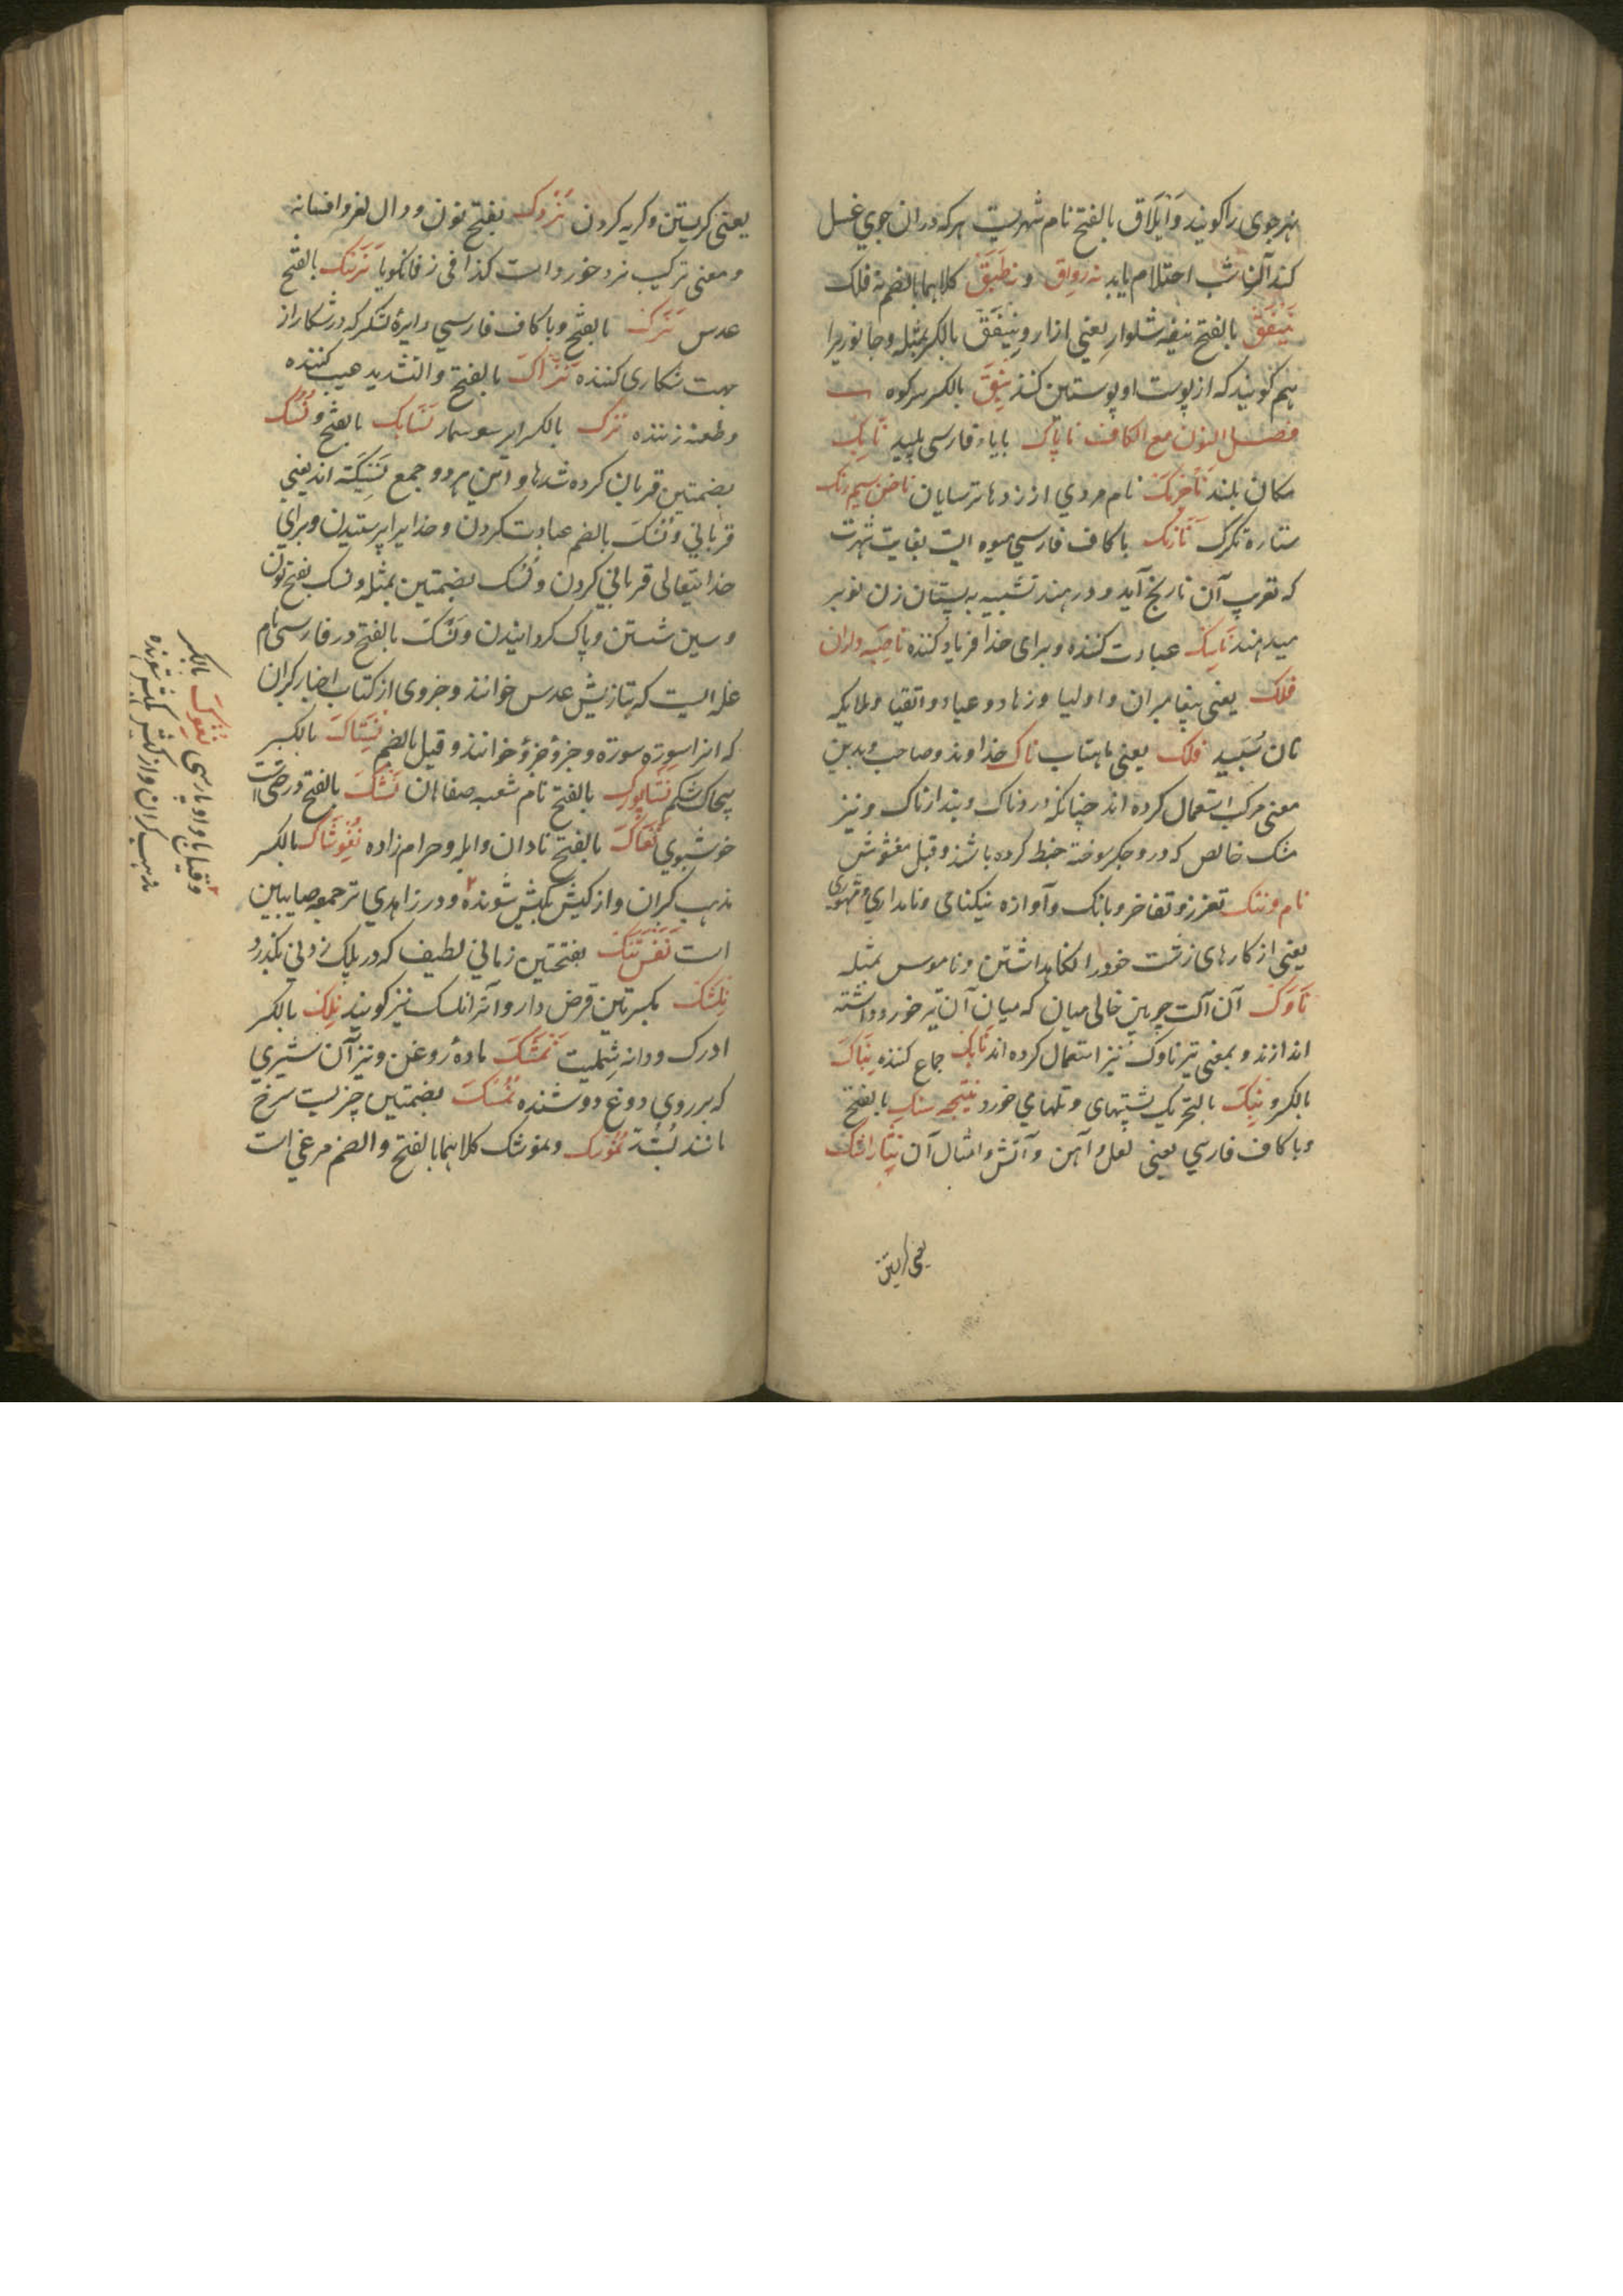 هر جوی را گویند وَاَیلَاق بالفتح نام شهریست هرکه دران جوی غسل
کند آنرا شب احتلام یابد نه رواق و نه طَبَق کلاهما بالضم نه فلک
نَیفَق بالفتح نیفه شلوار یعنی ازار و نِیفَق بالکسر بمثله و جانوریرا
هم گویند که از پوست او پوستین کنند نِیق بالکسر سر کوه
فصل النون مع الکاف ناپاک با یاء فارسی پلید
مکان بلند نام مردی از زدها ترسایان
ستاره تگرگ نَارَنک با کاف فارسی میوه ایست بغایت شهرت
که تعریب آن نارنج آید و در هند تشبیه به پستان زن نوبر
میدهند نَاسِک عبادت کننده و برای خدا فریاد کننده ناصیه داران
فلک یعنی پیغامبران و اولیا و زهاد و عباد و اتقیا و ملایکه
نان سَپید فلک یعنی ماهتاب ناک خداوند و صاحب و بدین
معنی مرکب استعمال کرده اند چنانکه دردناک و پندارناک و نیز
مشک خالص که درو جگر سوخته خبط کرده باشند و قیل مغشوش
نام و ننک تعزز و تفاخر و بانک و آوازه نیکنامی و نامداری و مشهوری
یعنی از کارهای زشت خود را نگاهداشتن و ناموس بمثله
نَاوَک آن آلت چوبین خالی میان که میان آن تیر خورد داشته
اندازند و بمعنی تیر ناوک نیز استعمال کرده اند نَایِک جماع کننده نِبَاک
بالکسر و نَبَک بالتحریک پشتهای و تلهای خورد نتیجه سنک بالفتح
و با کاف فارسی یعنی لعل و آهن و آتش و امثال آن نِثار اشک
یعنی گریستن
یعنی گریستن و گریه کردن نَردَک بفتح نون و دال لغز و افسانه
و معنی ترکیب نرد خورد است کذا فی زفانگویا نَرسَنک بالفتح
عدس نَرَک بالفتح و با کاف فارسی دایرهٔ لشکر که در شکار از
جهت شکاری کنند نَزّاک بالفتح و التشدید عیب کننده
و طعنه زننده نزک بالکسر ایر سوسمار نَسَایک بالفتح و نُسُک
بضمتین قربان کرده شدها و این هر دو جمع نَسِیکَه اند یعنی
قربانی و نُسک بالضم عبادت کردن و خدایرا پرستیدن و برای
خدایتعالی قربانی کردن و نُسُک بضمتین بمثله و نسک بفتح نون
و سین شستن و پاک گردانیدن و نَسک بالفتح در فارسی نام
غله ایست که بتازیش عدس خوانند و جزوی از کتاب اخبار گبران
که انرا سوره سوره و جزؤ جزؤ خوانند و قیل بالضم نِسَتاک بالکسر
پیچاک شکم نَشاپورک بالفتح نام شعبه صفاهان نَشک بالفتح درختی است
خوشبوی نَغَاک بالفتح نادان و ابله و حرام زاده نِغُوشاک بالکسر
مذهب گبران و از کیش بکیش شونده ۲ و در زاهدی ترجمه صابیین
است نَفَس تَنک بفتحتین زمانی لطیف که در پلک زدنی بگذرد
نِلِشک بکسرتین قرض دار و آنرا نلسک نیز گویند نِلک بالکسر
ادرک و دانه شملیت نَمَشک ماده روغن و نیز آن شیری
که بر روی دوغ دوشنده نُمُسک بضمتین چیزیست سرخ
مانند بُسَّد نَمُوسَک و نموشک کلاهما بالفتح و الضم مرغی است
۲ نغوک بالکسر
و قیل با واو پارسی
مذهب گبران و از کیش بکیش شونده